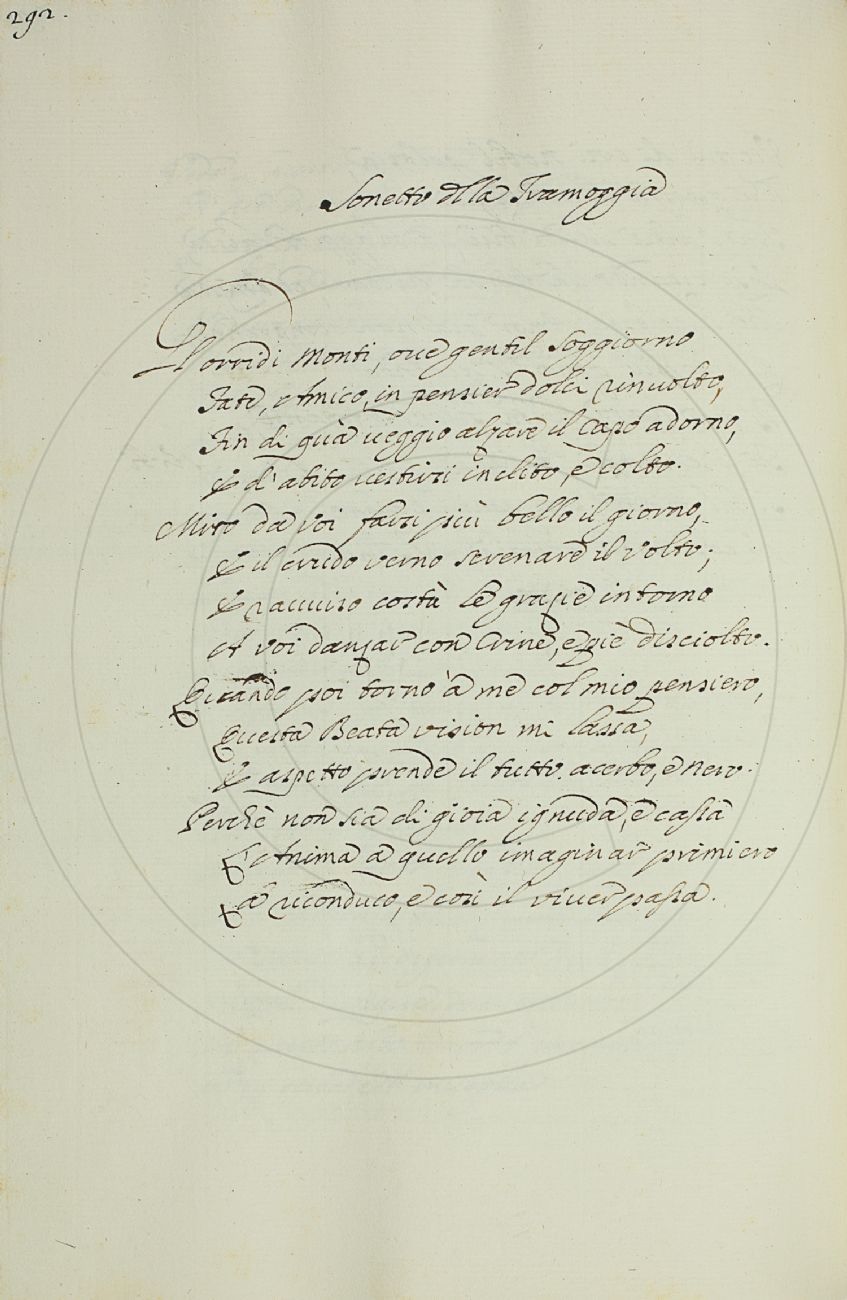 292.
Sonetto dlla Tramoggia
Gl'orridi Monti, ove gentil soggiorno
Fate, Amico, in pensier dolci rinvolto,
Fin di quà veggio alzare il Capo adorno,
E d'abito vestirsi inclito, e colto.
Miro da voi farsi più bello il giorno,
E il crudo verno serenare il volto;
E ravviso costà le grazie intorno
A voi danzar con Crine, e piè disciolto.
Quando poi torno à me col mio pensiero,
Questa Beata vision mi lassa,
E aspetto prende il tutto acerbo, e nero.
Perchè non sia di gioia ignuda, e cassa
L'Anima a quello imaginar primiero
La riconduco, e così il viver passa.